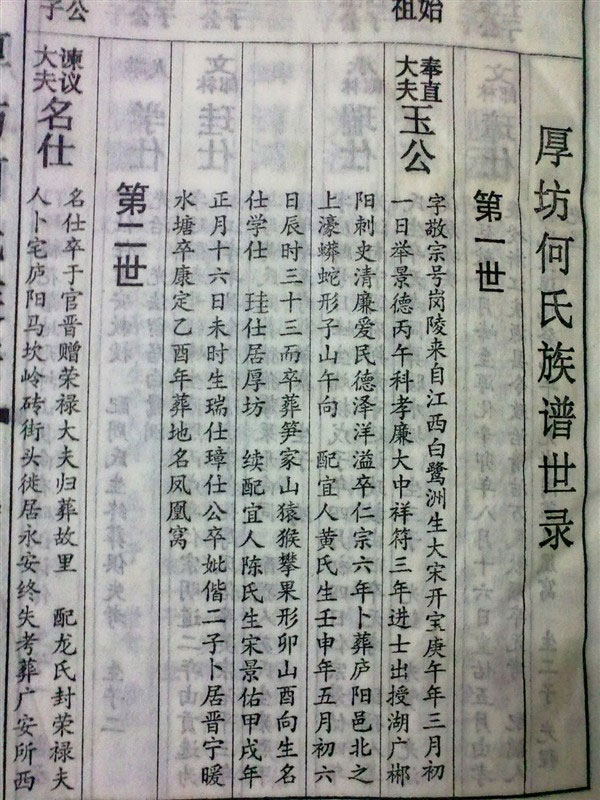 始
祖
字公
厚坊何氏族谱世录
第一世
奉直
大夫
玉公
字敬宗号岗陵来自江西白鹭洲生大宋开宝庚午年三月初
一日举景德丙午科孝廉大中祥符三年进士出授湖广郴
阳刺史清廉爱民德泽洋溢卒仁宗六年卜葬庐阳邑北之
上濠蟒蛇形子山午向 配宜人黄氏生壬申年五月初六
日辰时三十三而卒葬笋家山猿猴攀果形卯山酉向生名
仕学仕 珪仕居厚坊 续配宜人陈氏生宋景佑甲戌年
正月十六日未时生瑞仕璋仕公卒妣偕二子卜居晋宁暖
水塘卒康定乙酉年葬地名凤凰窝
第二世
谏议
大夫
名仕
名仕卒于官晋赠荣禄大夫归葬故里 配龙氏封荣禄夫
人卜宅庐阳马坎岭砖街头徙居永安终失考葬广安所西